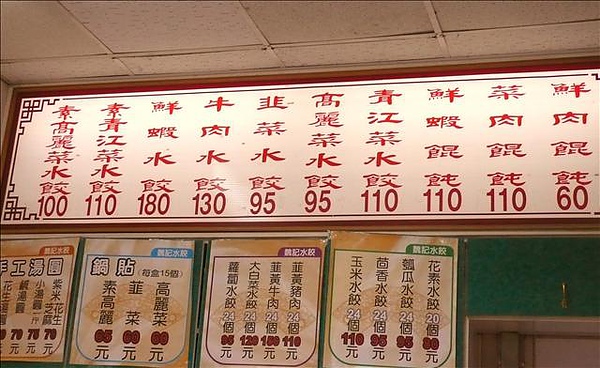 鮮肉餛飩 60
菜肉餛飩 110
鮮蝦餛飩 110
青江菜水餃 110
高麗菜水餃 95
韭菜水餃 95
牛肉水餃 130
鮮蝦水餃 180
素青江菜水餃 110
素高麗菜水餃 100
魏記水餃
花素水餃 20個 80元
瓠水餃 24個 95元
茴香水餃 24個 95元
玉米水餃 24個 110元
魏記水餃
韭黃豬肉 24個 110元
韭黃牛肉 24個 150元
大白菜水餃 24個 120元
蘿蔔水餃 24個 95元
魏記水餃
鍋貼 (每盒15個)
高麗菜 60元
韭菜 60元
素高麗 65元
魏記水餃
手工湯圓
紫米花生 70元
鹹湯圓 75元